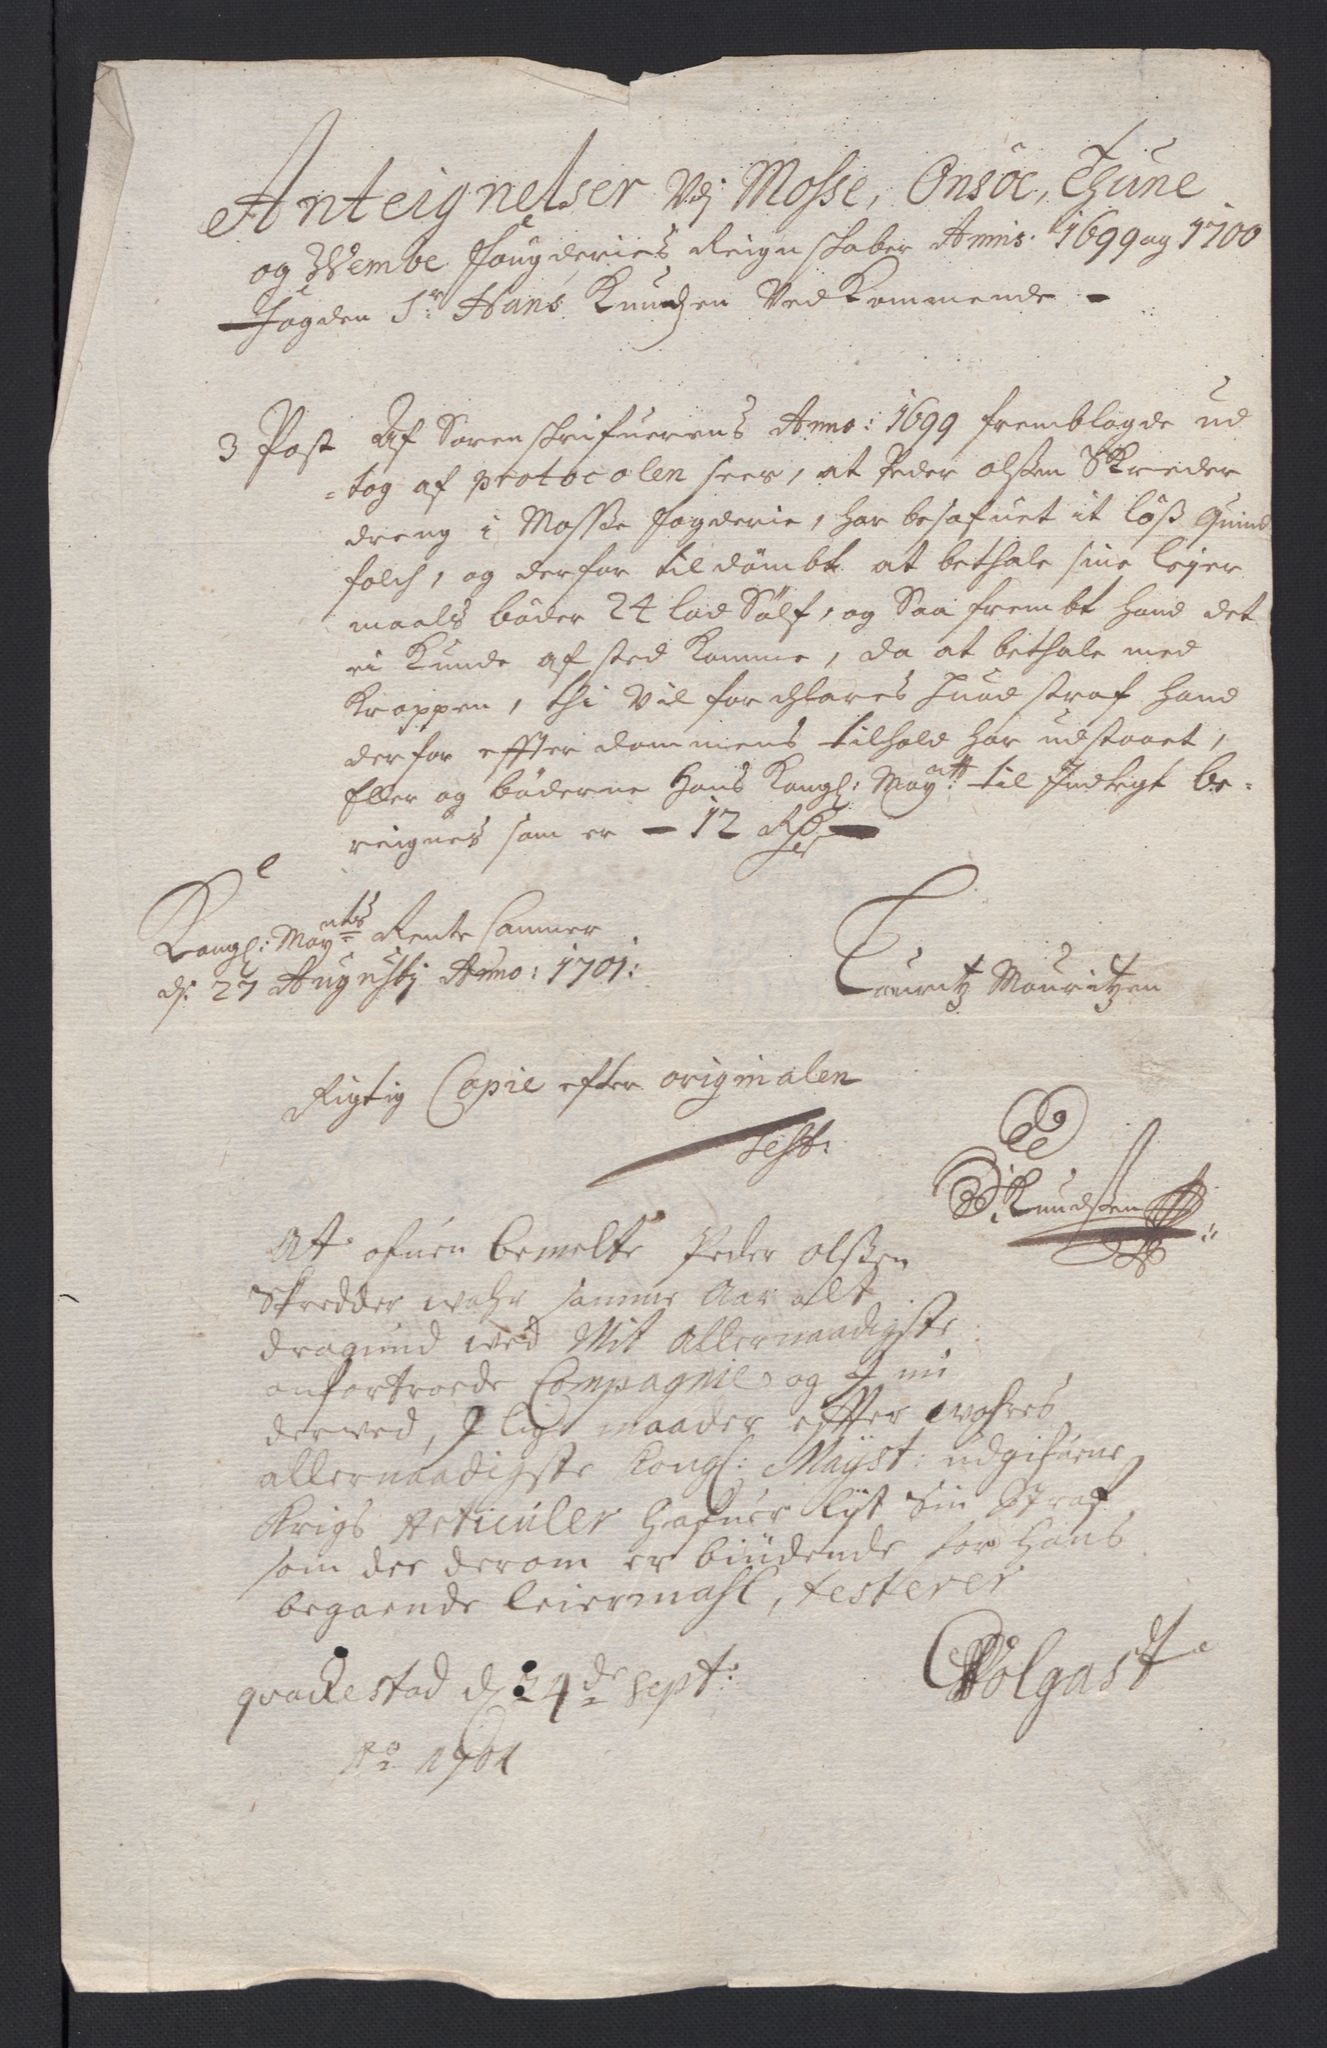 Anteignelser Vdj Mosse, Onsöe, Thune
og Wembe fougderies Reignskaber Annis. 1699 og 1700
Fogden Sr. Hans Knudzen Vedkommende
3 Post Af Sorenskrifuerens Anno: 1699 fremblagde ud
=tog af protocolen sees, at Peder olssen Skreder
dreng i Mosse fogderie, har besofuet it löss Quind
folch, og derfor tildömbt at bethale sine leyer
maals böder 24 lod Sölf, og Saa frembt hand det
ei Kunde afsted komme, da at bethale med
Kroppen, thi Vil forchlares huad straf hand
derfor effter dommens tilhold har udstaaet,
Eller og böderne Hans Kongl: Mayтt: til Indtegt be-
reignes som er - 12 Rdr
Kongl: Mayts Rente Cammer
dj: 27 Augustj Anno: 1701:
Lauritz Mouritzen
Rigtig Copie efter originalen
Test:
Knudssen
At ofuen bemelte Peder olssen
Skredder wahr samme Aar alt
dragund wed Mit allernaadigste
anfortroede Compagnie og I mi
derwed, I lige maader effter wohres
allernaadigste Kongl: Mayst: udgifuene
Krigs Articuler hafuer lijt Sin Straf
som der derom er biudende for hans
begaaende leiermahl, testerer
qvackestad d 24de Sept:
Ao 1701
Wolgast